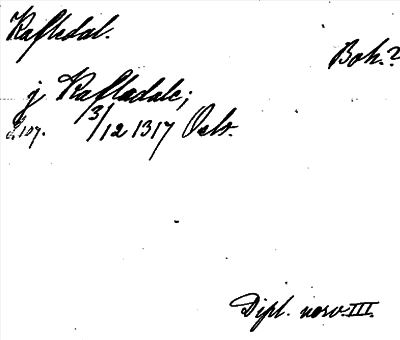 Kafledal.
Boh.?
j Kafladale;
2107. 3/12 1317 Oslo.
Dipl. norv. III.